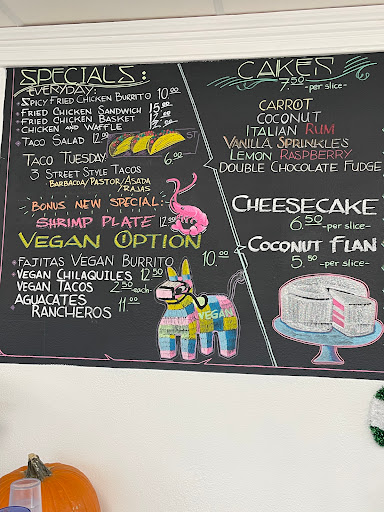 SPECIALS:
EVERYDAY:
SPICY FRIED CHICKEN BURRITO 10.00
FRIED CHICKEN SANDWICH 15.00
FRIED CHICKEN BASKET
CHICKEN AND WAFFLE
TACO SALAD 12.00
TACO TUESDAY 6.00
3 STREET STYLE TACOS
BARBACOA/PASTOR/ASADA
RAJAS
BONUS NEW SPECIAL:
SHRIMP PLATE 12.00
VEGAN OPTION
FAJITAS VEGAN BURRITO 10.00
VEGAN CHILAQUILES 12.50
VEGAN TACOS 2.50 each-
AGUACATES
RANCHEROS 11.00
VEGAN
CAKES
7.50 -per slice-
CARROT
COCONUT
ITALIAN RUM
VANILLA SPRINKLES
LEMON RASPBERRY
DOUBLE CHOCOLATE FUDGE
CHEESECAKE
6.50 -per slice-
COCONUT FLAN
5.50 -per slice-